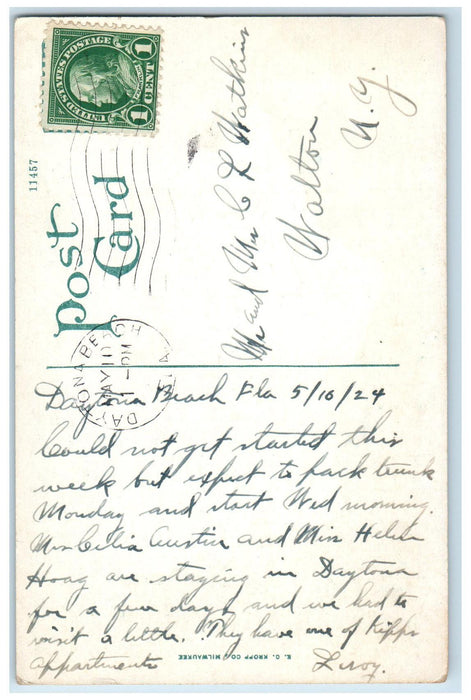 UNITED STATES POSTAGE
1 CENT 1
11457
Post
Card
DAYTONA BEACH
MAY 10
PM
FLA.
Mr and Mrs C L Watkins
Walton
N.Y.
Daytona Beach Fla 5/10/24
Could not get started this
week but expect to pack trunk
Monday and start Wed morning.
Mrs Celia Austin and Miss Helen
Hoag are staying in Daytona
for a few days and we had to
visit a little. They have one of Kipps
appartments Leroy.
E. C. KROPP CO., MILWAUKEE